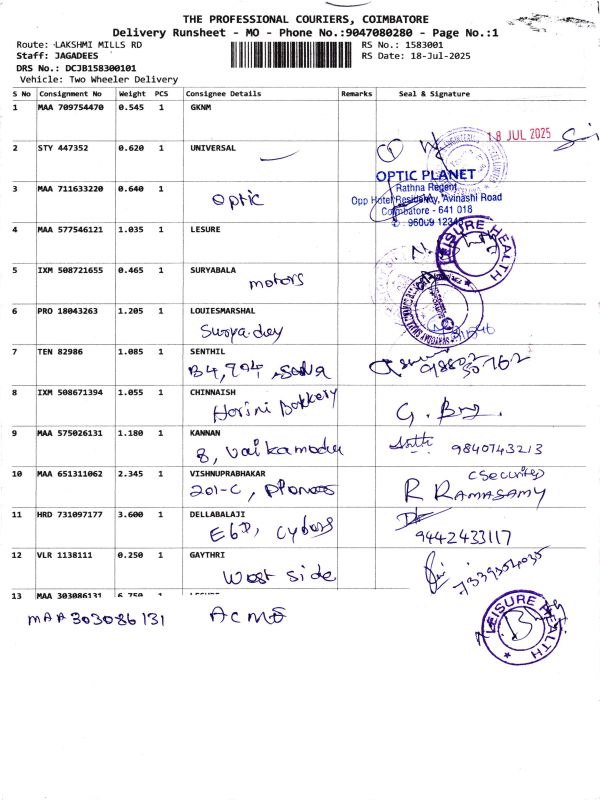 THE PROFESSIONAL COURIERS, COIMBATORE
Delivery Runsheet - MO - Phone No.:9047080280 - Page No.:1
Route: LAKSHMI MILLS RD RS No.: 1583001
Staff: JAGADEES RS Date: 18-Jul-2025
DRS No.: DCJB158300101
Vehicle: Two Wheeler Delivery
S No Consignment No Weight PCS Consignee Details Remarks Seal & Signature
1 MAA 709754470 0.545 1 GKNM
18 JUL 2025
2 STY 447352 0.620 1 UNIVERSAL
OPTIC PLANET
3 MAA 711633220 0.640 1 Rathna Regent
optic Opp Hotel Residency, Avinashi Road
Coimbatore - 641 018
4 MAA 577546121 1.035 1 LESURE
LEISURE HEALTH
5 IXM 508721655 0.465 1 SURYABALA
motors
6 PRO 18043263 1.205 1 LOUIESMARSHAL
Surya dey
7 TEN 82986 1.085 1 SENTHIL
8 IXM 508671394 1.055 1 CHINNAISH
Harini
9 MAA 575026131 1.180 1 KANNAN
8, 9840743213
10 MAA 651311062 2.345 1 VISHNUPRABHAKAR
201-C, R RAMASAMY
11 HRD 731097177 3.600 1 DELLABALAJI
9442433117
12 VLR 1138111 0.250 1 GAYTHRI
West side
13 MAA 303086131 6.750 1
MAA303086131 ACME
LEISURE HEALTH